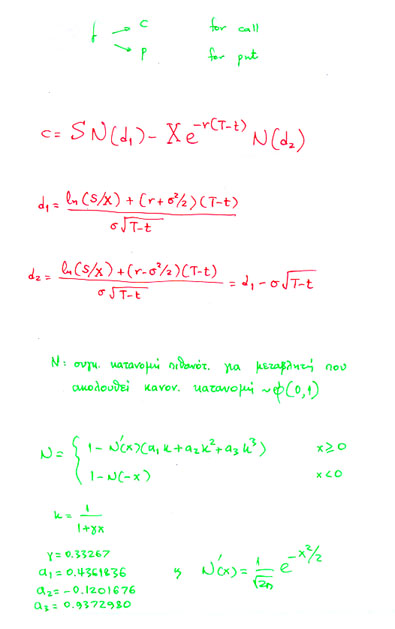 f → c for call
→ p for put
c = S N(d₁) - X e^{-r(T-t)} N(d₂)
d₁ = \frac{ln(S/X) + (r + σ²/2)(T-t)}{σ√{T-t}}
d₂ = \frac{ln(S/X) + (r - σ²/2)(T-t)}{σ√{T-t}} = d₁ - σ√{T-t}
N: συγκ. κατανομή πιθανότ. για μεταβλητή που
ακολουθεί κανον. κατανομή ~φ(0,1)
N = { 1 - N'(x)(a₁k + a₂k² + a₃k³) x ≥ 0
1 - N(-x) x < 0
k = \frac{1}{1+γx}
γ = 0.33267
a₁ = 0.4361836
a₂ = -0.1201676
a₃ = 0.9372980
N'(x) = \frac{1}{√{2π}} e^{-x²/2}